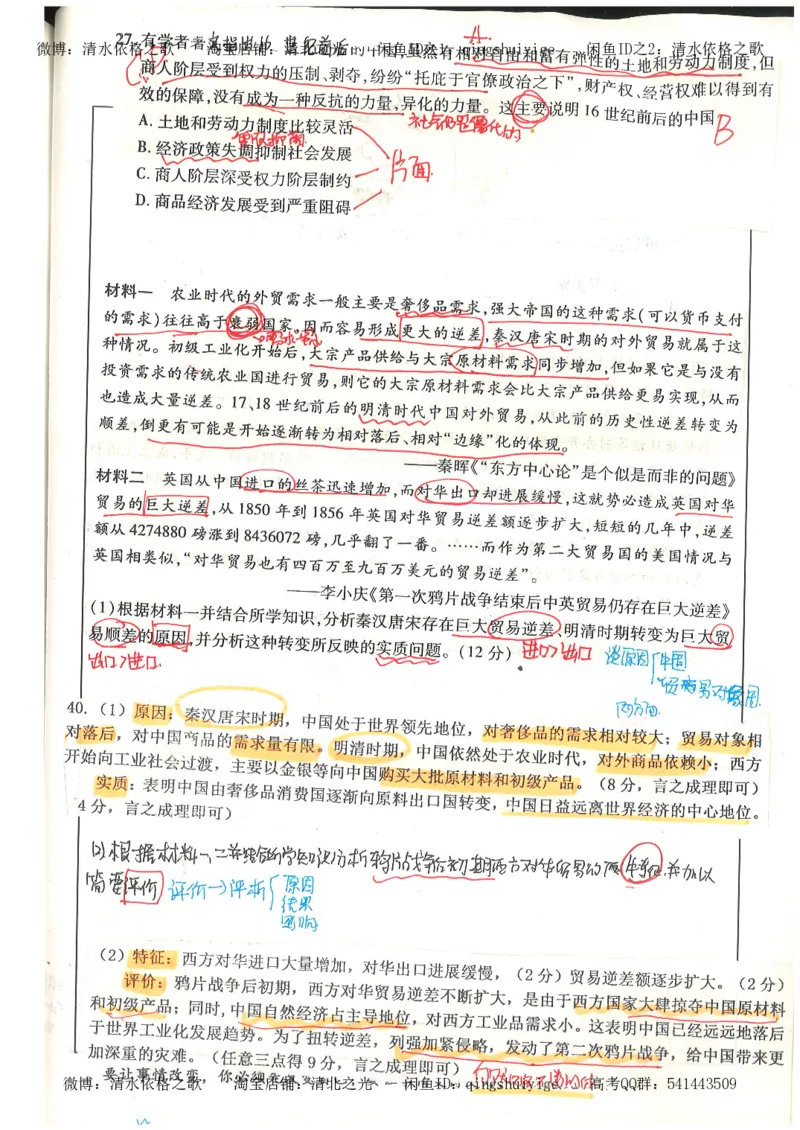 27. 有学者著文指出 16 世纪前后的中国,虽然有相对自由和富有弹性的土地和劳动力制度,但
微博:清水依格之歌 淘宝店铺:清北之光 闲鱼ID:qingshuiyige 闲鱼ID之2:清水依格之歌
商人阶层受到权力的压制、剥夺,纷纷“托庇于官僚政治之下”,财产权、经营权难以得到有
效的保障,没有成为一种反抗的力量,异化的力量。这主要说明 16 世纪前后的中国
B
A. 土地和劳动力制度比较灵活
B. 经济政策失调抑制社会发展
片面
C. 商人阶层深受权力阶层制约
D. 商品经济发展受到严重阻碍
材料一 农业时代的外贸需求一般主要是奢侈品需求,强大帝国的这种需求(可以货币支付
的需求)往往高于衰弱国家,因而容易形成更大的逆差,秦汉唐宋时期的对外贸易就属于这
种情况。初级工业化开始后,大宗产品供给与大宗原材料需求同步增加,但如果它是与没有
投资需求的传统农业国进行贸易,则它的大宗原材料需求会比大宗产品供给更易实现,从而
也造成大量逆差。17、18 世纪前后的明清时代中国对外贸易,从此前的历史性逆差转变为
顺差,倒更有可能是开始逐渐转为相对落后、相对“边缘”化的体现。
——秦晖《“东方中心论”是个似是而非的问题》
材料二 英国从中国进口的丝茶迅速增加,而对华出口却进展缓慢,这就势必造成英国对华
贸易的巨大逆差,从 1850 年到 1856 年英国对华贸易逆差额逐步扩大,短短的几年中,逆差
额从 4274880 磅涨到 8436072 磅,几乎翻了一番。……而作为第二大贸易国的美国情况与
英国相类似,“对华贸易也有四百万至九百万美元的贸易逆差”。
——李小庆《第一次鸦片战争结束后中英贸易仍存在巨大逆差》
(1)根据材料一并结合所学知识,分析秦汉唐宋存在巨大贸易逆差、明清时期转变为巨大贸
易顺差的原因,并分析这种转变所反映的实质问题。(12 分)
进口>出口
出口>进口
中国
两方面
40. (1)原因:秦汉唐宋时期,中国处于世界领先地位,对奢侈品的需求相对较大;贸易对象相
对落后,对中国商品的需求量有限。明清时期,中国依然处于农业时代,对外商品依赖小;西方
开始向工业社会过渡,主要以金银等向中国购买大批原材料和初级产品。(8 分,言之成理即可)
实质:表明中国由奢侈品消费国逐渐向原料出口国转变,中国日益远离世界经济的中心地位。
4 分,言之成理即可)
(2)根据材料一、二并结合所学知识分析鸦片战争后初期西方对华贸易的特征,并加以
简要评价
评价→评析
原因
结果
影响
(2)特征:西方对华进口大量增加,对华出口进展缓慢,(2 分)贸易逆差额逐步扩大。(2 分)
评价:鸦片战争后初期,西方对华贸易逆差不断扩大,是由于西方国家大肆掠夺中国原材料
和初级产品;同时,中国自然经济占主导地位,对西方工业品需求小。这表明中国已经远远地落后
于世界工业化发展趋势。为了扭转逆差,列强加紧侵略,发动了第二次鸦片战争,给中国带来更
加深重的灾难。(任意三点得 9 分,言之成理即可)
微博:清水依格之歌 淘宝店铺:清北之光 闲鱼ID:qingshuiyige 高考QQ群:541443509